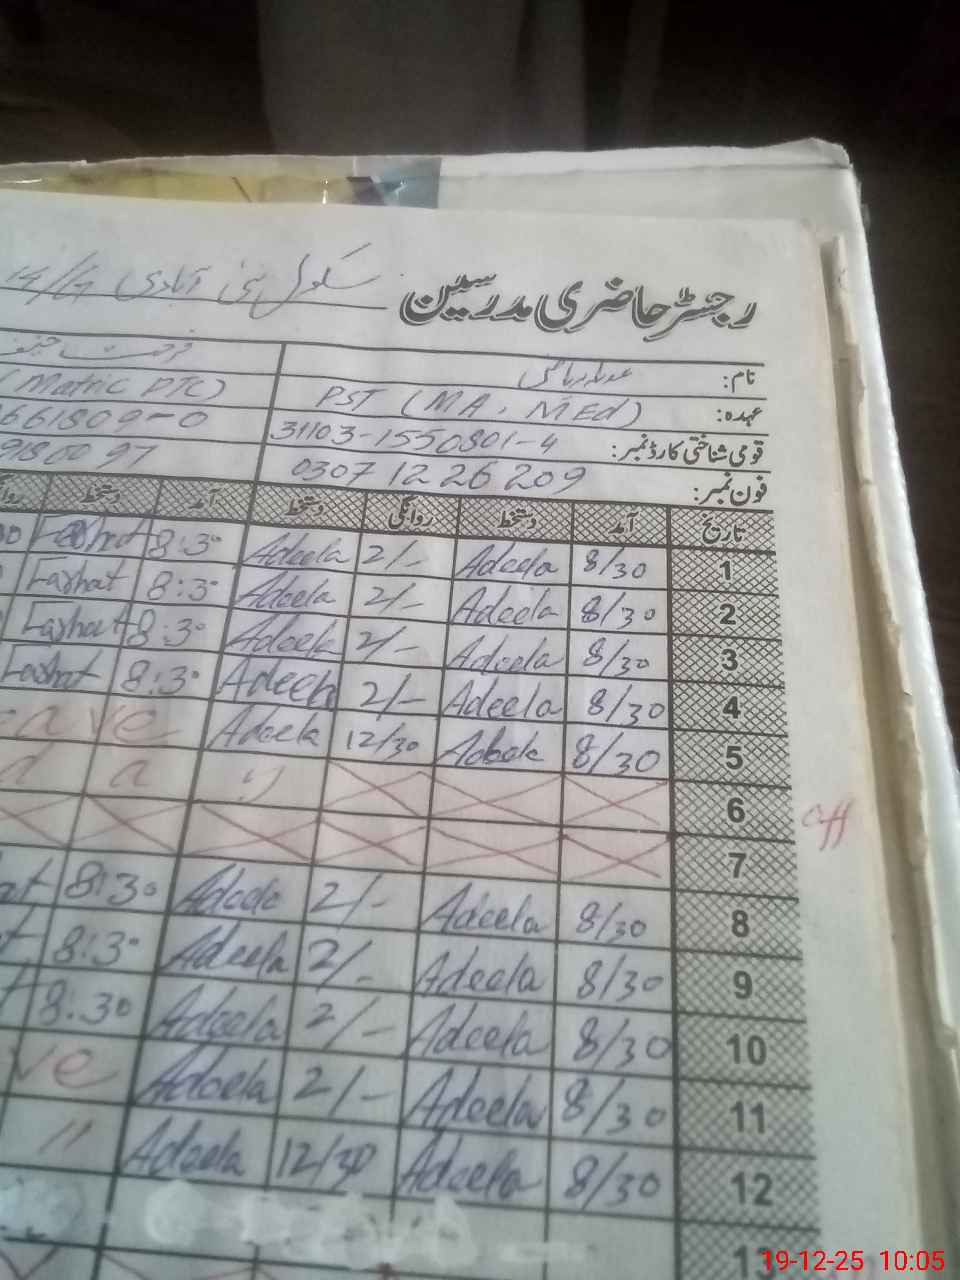 رجسٹر حاضری مدرسین سکول بنی آبادی 14/G
نام:
عہدہ: PST (MA, MEd) (Matric PTC)
قومی شناختی کارڈ نمبر: 31103-1550801-4 661809-0
فون نمبر: 0307 12 26 209 9180097
تاریخ آمد دستخط روانگی دستخط آمد دستخط
1 8/30 Adeela 2/- Adeela 8:30 Farhat
2 8/30 Adeela 2/- Adeela 8:30 Farhat
3 8/30 Adeela 2/- Adeela 8:30 Farhat
4 8/30 Adeela 2/- Adeela 8:30 Farhat
5 8/30 Adeela 12/30 Adeela ave
6 day off
7
8 8/30 Adeela 2/- Adeela 8:30
9 8/30 Adeela 2/- Adeela 8:30
10 8/30 Adeela 2/- Adeela 8:30
11 8/30 Adeela 2/- Adeela ve
12 8/30 Adeela 12/30 Adeela 11
13
19-12-25 10:05